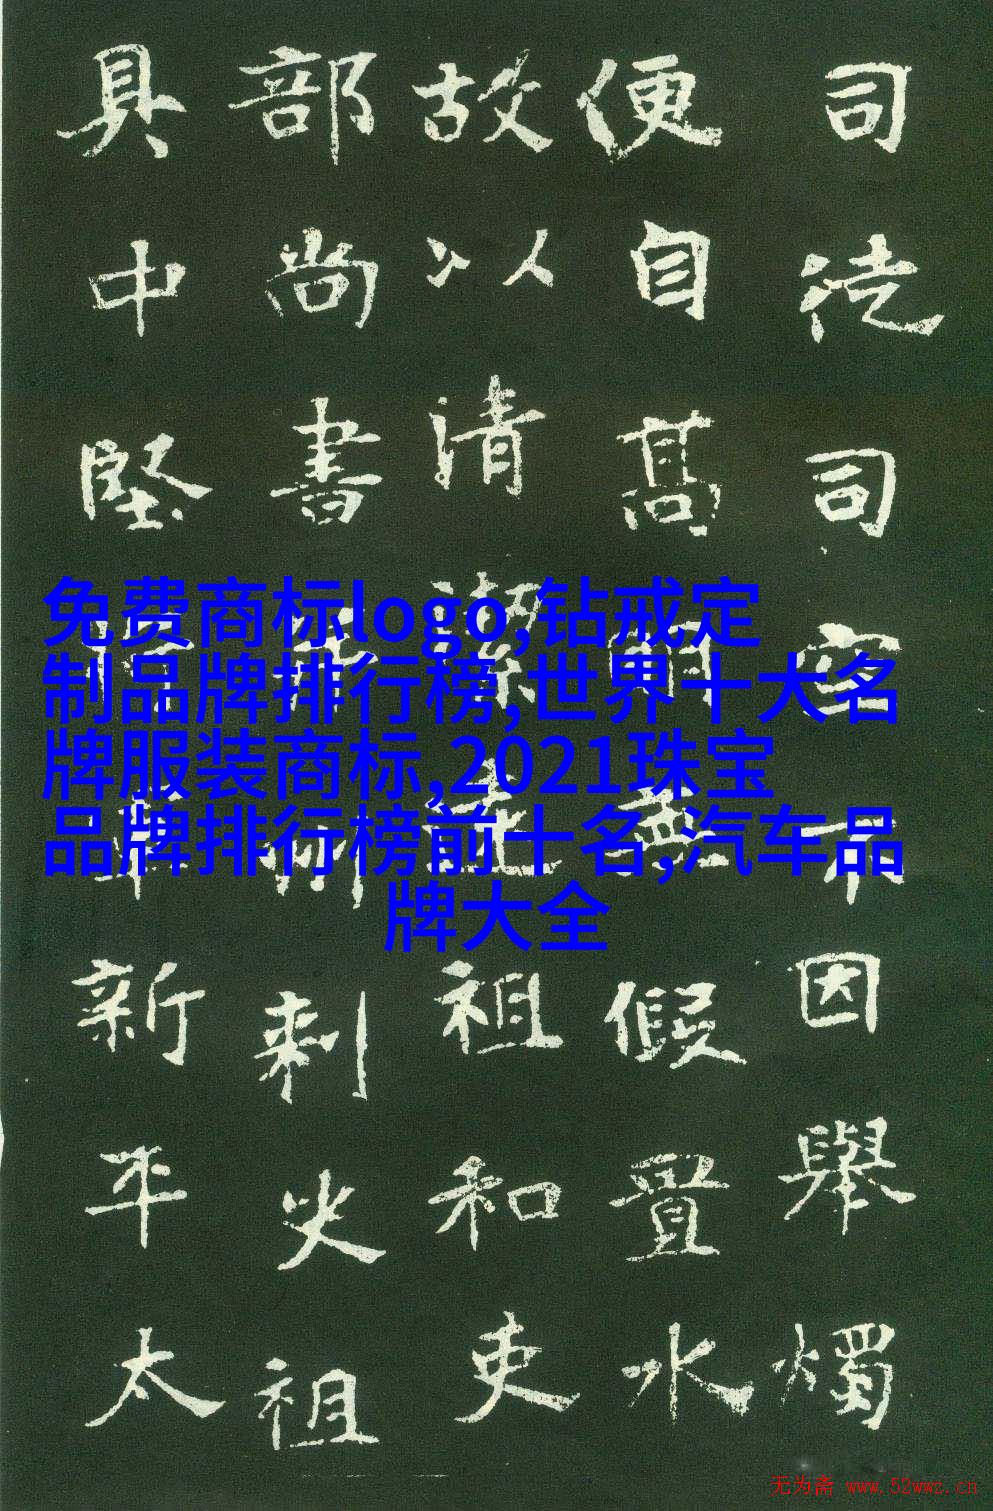 司徒司空不因舉燭
便自高明無假置水
故以清潔祖和吏
部尚書州刺史祖
具中堅將軍新平太
免费商标logo,钻戒定
制品牌排行榜,世界十大名
牌服装商标,2021珠宝
品牌排行榜前十名,汽车品
牌大全
无为斋 www.52wwz.cn